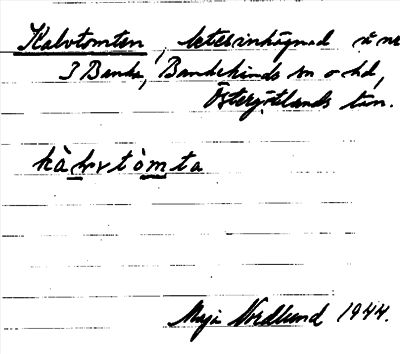 Kalvtomten, betesinhägnad å nr
3 Banka, Bankekinds sn o hd,
Östergötlands län.
kàlvtòmta
Maja Nordlund 1944.